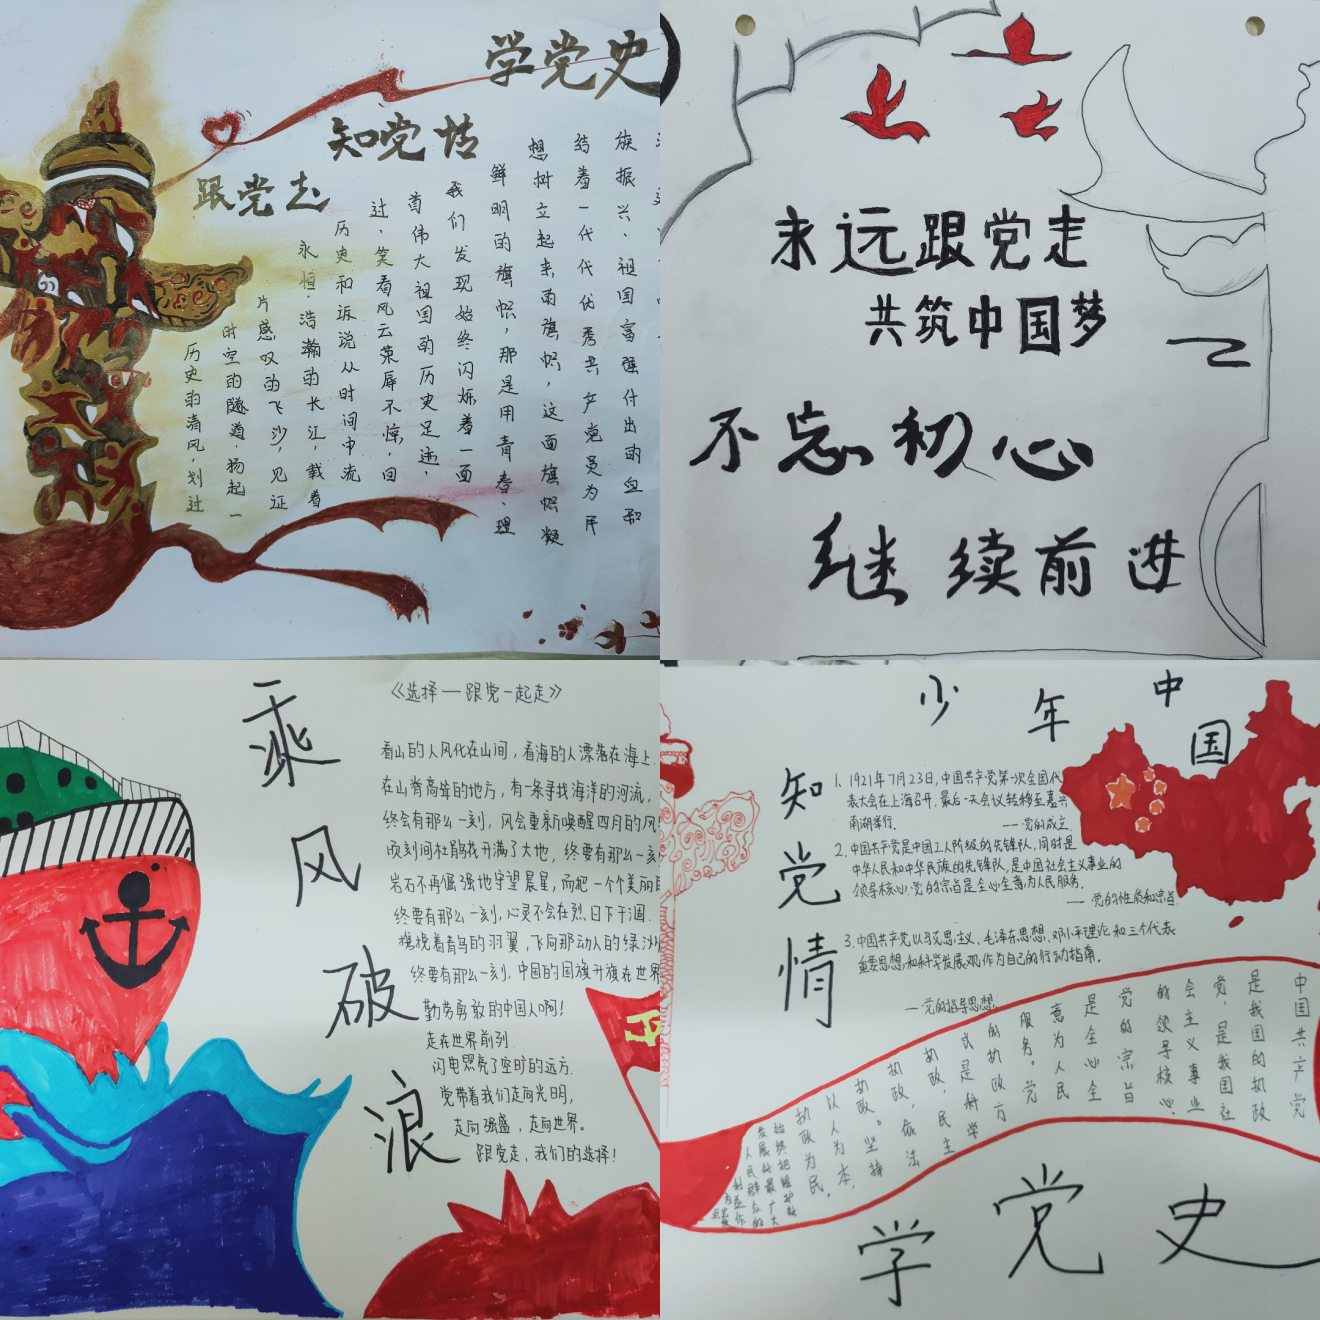 学党史
知党情
跟党走
历史的清风,划过
时空的隧道,扬起一
片感叹的飞沙,见证
永恒.浩瀚的长江,载着
历史和诉说从时间中流
过,笑看风云荣辱不惊,回
首伟大祖国的历史足迹,
我们发现始终闪烁着一面
鲜明的旗帜,那是用青春、理
想树立起来的旗帜,这面旗帜凝
结着一代代优秀共产党员为民
族振兴、祖国富强付出的血和
永远跟党走
共筑中国梦
不忘初心
继续前进
乘风破浪
《选择—跟党一起走》
看山的人风化在山间,看海的人漂落在海上.
在山脊高耸的地方,有一条寻找海洋的河流,
终会有那么一刻,风会重新唤醒四月的风
顷刻间杜鹃花开满了大地,终要有那么一刻
岩石不再倔强地守望晨星,而把一个个美丽
终要有那么一刻,心灵不会在烈日下干涸.
搅挠着青鸟的羽翼,飞向那动人的绿沙
终要有那么一刻.中国的国旗升旗在世界
勤劳勇敢的中国人啊!
走在世界前列.
闪电照亮了密时的远方.
党带着我们走向光明,
走向强盛,走向世界。
跟党走,我们的选择!
少年中国
知党情
1. 1921年7月23日,中国共产党第一次全国代
表大会在上海召开.最后一天会议转移至嘉兴
南湖举行.
——党的成立.
2.中国共产党是中国工人阶级的先锋队,同时是
中华人民和中华民族的先锋队,是中国社会主义事业的
领导核心.党的宗旨是全心全意为人民服务.
——党的性质和宗旨.
3.中国共产党以马克思主义、毛泽东思想、邓小平理论和三个代表
重要思想和科学发展观作为自己的行动指南。
——党的指导思想.
中国共产党
是我国的执政
党,是我国社
会主义事业
的领导核心.
党的宗旨
是全心全
意为人民
服务。党
的执政方
式是科学
执政,民主
执政,依法
执政。坚持
以人为本,
执政为民.
学党史